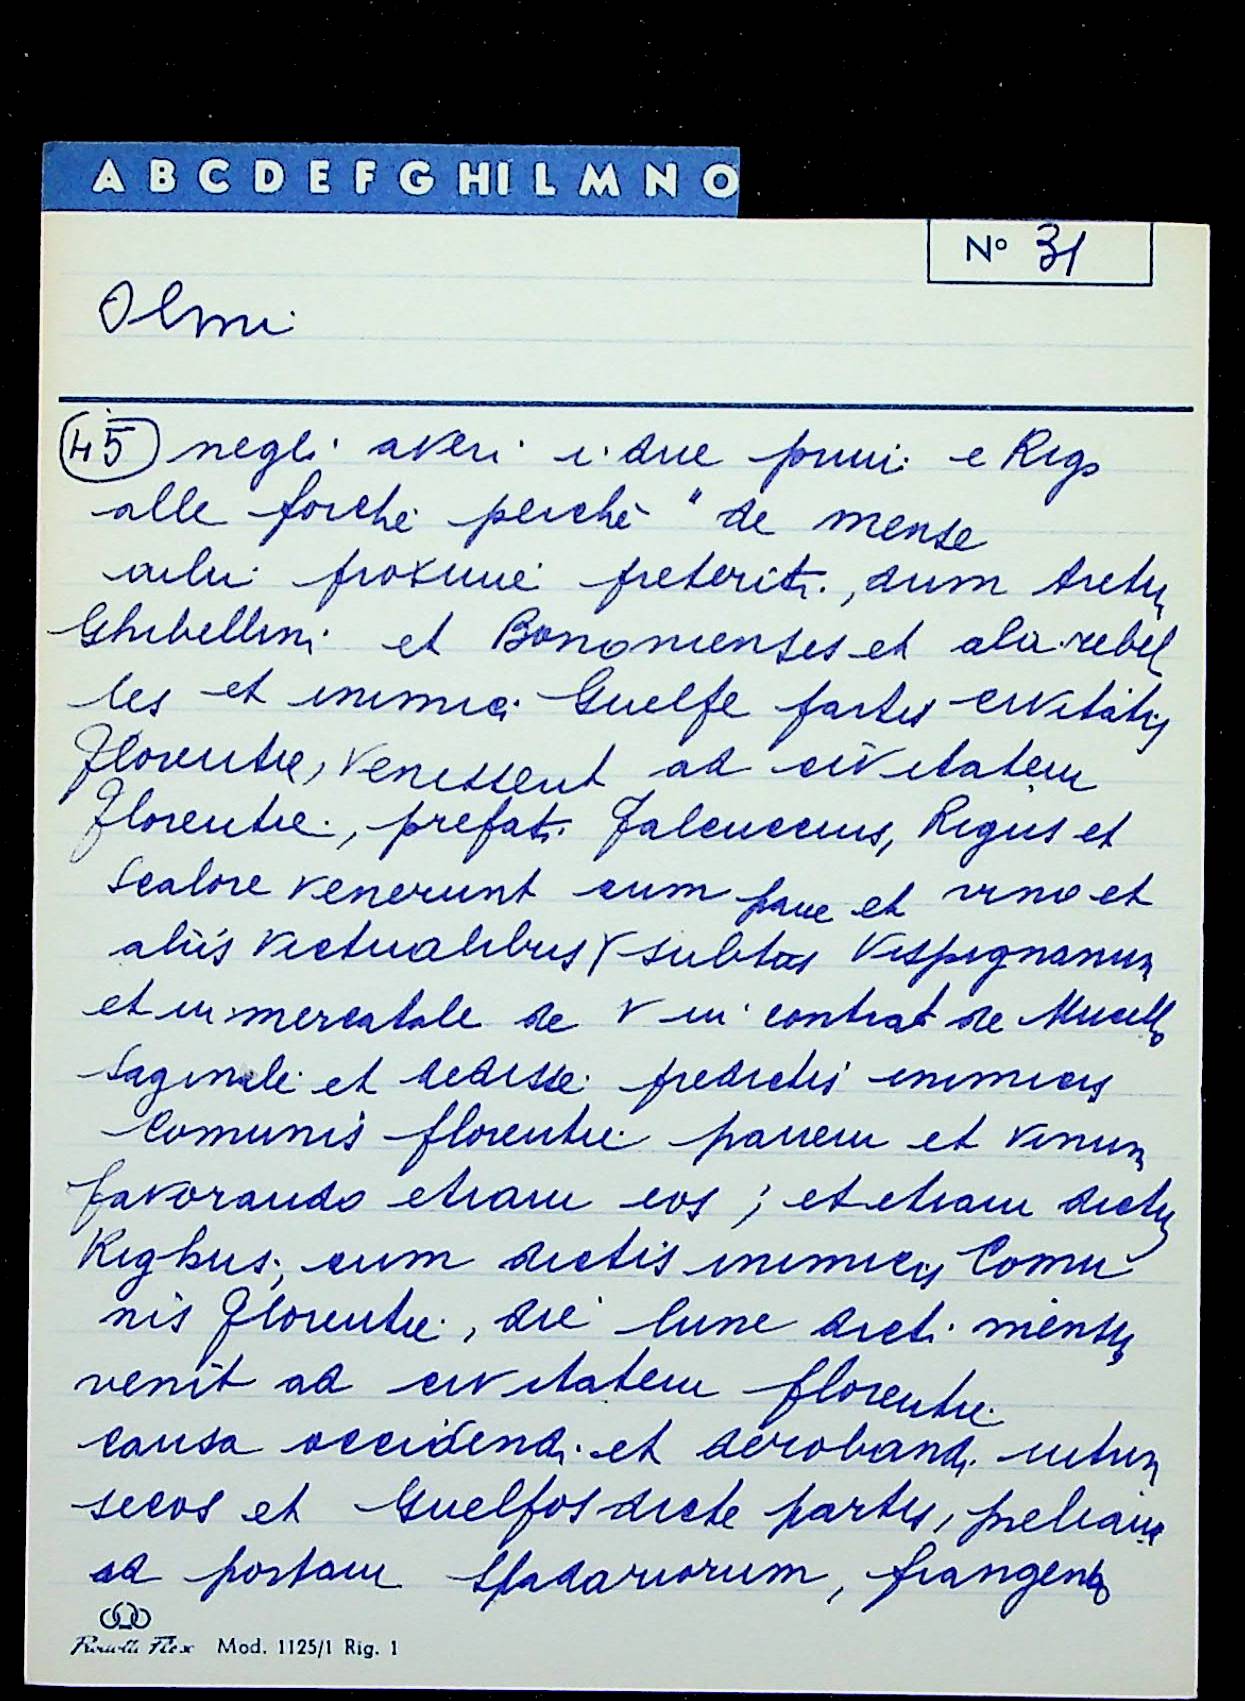 A B C D E F G HI L M N O
Nº 31
Olmi
45 negli averi i due primi e Rigo
alle forche perchè " de mense
iulii proxime preteriti, dum dicti
Ghibellini et Bononienses et alii rebel
les et inimici Guelfe partis civitatis
Florentie, venissent ad civitatem
Florentie, prefati Falcuccius, Rigus et
Scalore venerunt cum pane et vino et
aliis victualibus subtus Vespignanum
et in mercatale de V in contrat de Mucello
et dedisse predictis inimicis
Comunis florentie panem et vinum
favorando etiam eos ; et etiam dictus
Righus, cum dictis inimicis Comu
nis Florentie, die lune dicti mensis
venit ad civitatem florentie
causa occidendi et derobandi intrin
secos et Guelfos dicte partis, preliando
ad portam Spadariorum, frangendo
Mod. 1125/1 Rig. 1